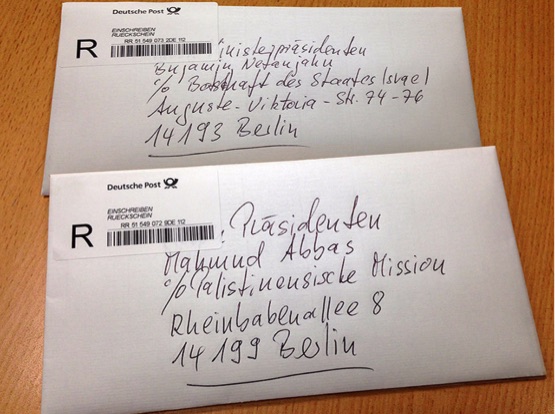 Deutsche Post
EINSCHREIBEN
RUECKSCHEIN
R
RR 51 549 073 2DE 112
Ministerpräsidenten
Benjamin Netanjahu
% Botschaft des Staates Israel
Auguste-Viktoria-Str. 74-76
14193 Berlin
Deutsche Post
EINSCHREIBEN
RUECKSCHEIN
R
RR 51 549 072 9DE 112
Präsidenten
Mahmud Abbas
% Palistinensische Mission
Rheinbabenallee 8
14199 Berlin